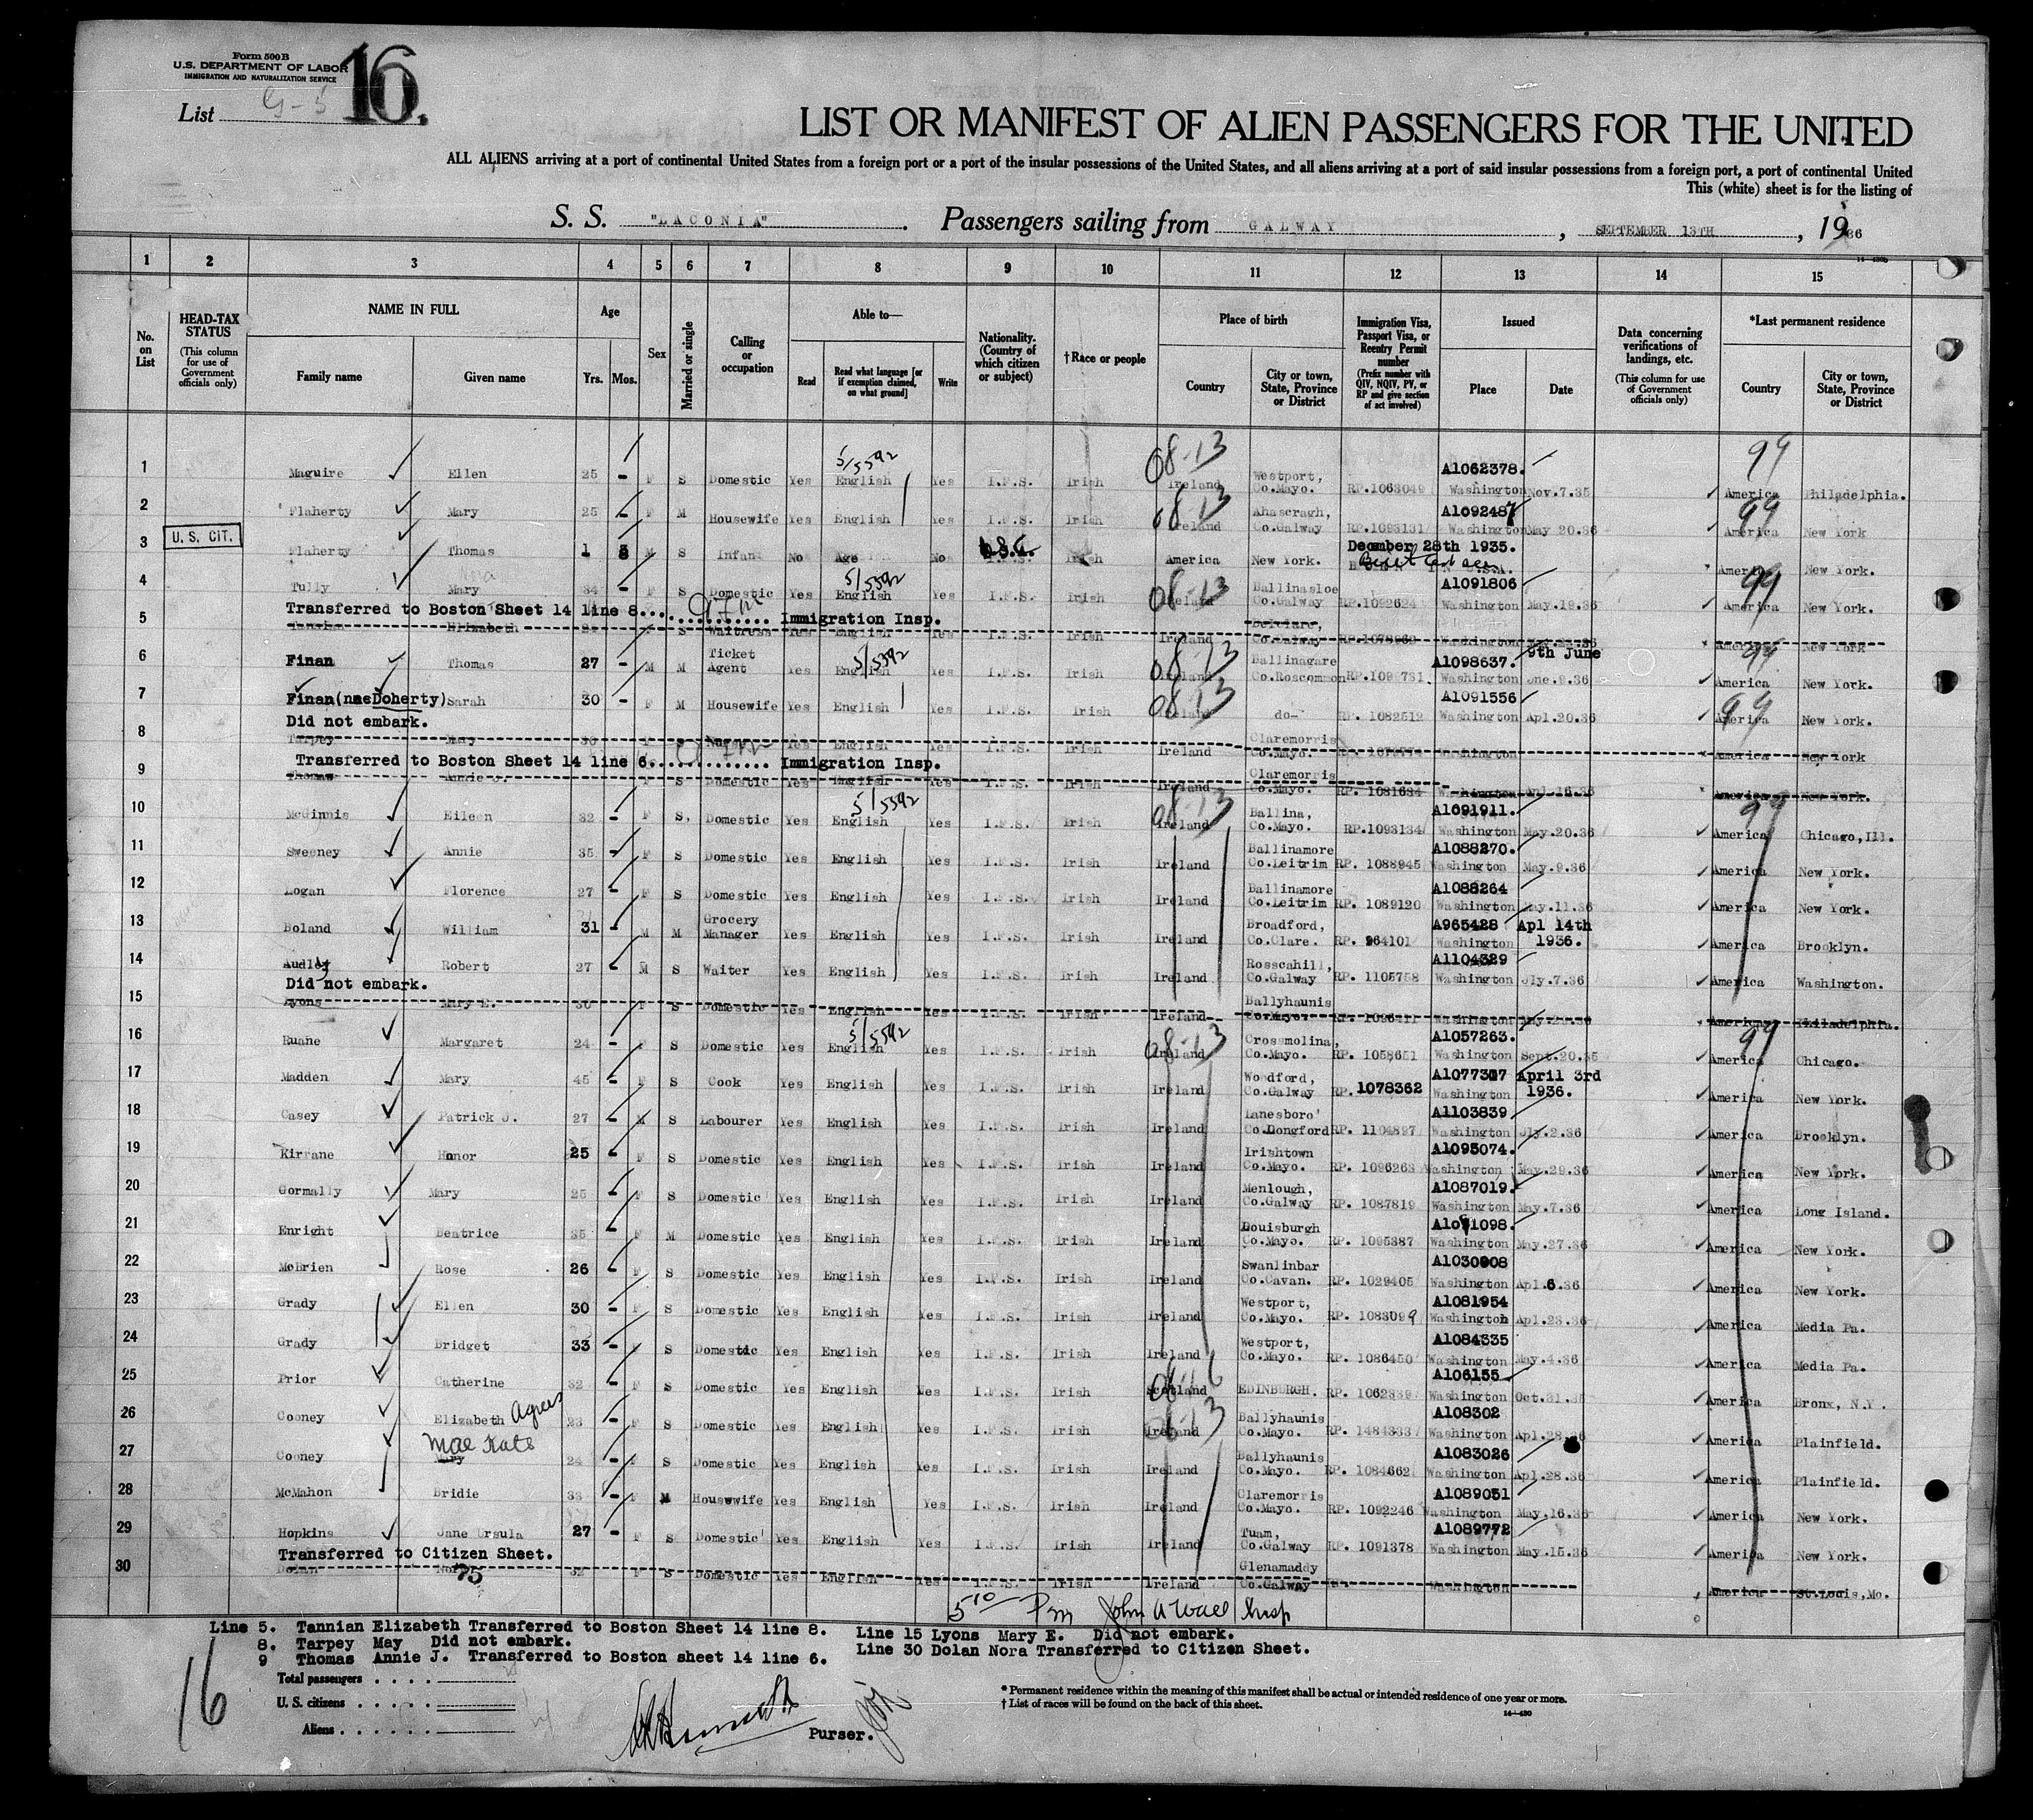 Form 500 B
U.S. DEPARTMENT OF LABOR
IMMIGRATION AND NATURALIZATION SERVICE
List G-5 16.
LIST OR MANIFEST OF ALIEN PASSENGERS FOR THE UNITED
ALL ALIENS arriving at a port of continental United States from a foreign port or a port of the insular possessions of the United States, and all aliens arriving at a port of said insular possessions from a foreign port, a port of continental United
This (white) sheet is for the listing of
S. S. "LACONIA". Passengers sailing from GALWAY, SEPTEMBER 13TH, 1936
14-430b
1 2 3 4 5 6 7 8 9 10 11 12 13 14 15
No. on List
HEAD-TAX STATUS (This column for use of Government officials only)
NAME IN FULL
Family name
Given name
Age
Yrs. Mos.
Sex
Married or single
Calling or occupation
Able to—
Read
Read what language [or if exemption claimed, on what ground]
Write
Nationality. (Country of which citizen or subject)
†Race or people
Place of birth
Country
City or town, State, Province or District
Immigration Visa, Passport Visa, or Reentry Permit number (Prefix number with QIV, NQIV, PV, or RP and give section of act involved)
Issued
Place
Date
Data concerning verifications of landings, etc. (This column for use of Government officials only)
*Last permanent residence
Country
City or town, State, Province or District
5/5592 08-13 A1062378. 99
1 Maguire Ellen 25 - F S Domestic Yes English Yes I.F.S. Irish Ireland Westport, Co.Mayo. RP.1063049 Washington Nov.7.35 America Philadelphia.
08-13 A1092487 99
2 Flaherty Mary 25 - F M Housewife Yes English Yes I.F.S. Irish Ireland Ahascragh, Co.Galway RP.1093131 Washington May 20.36 America New York
U. S. CIT.
December 28th 1935.
3 Flaherty Thomas 1 8 M S Infant No Age No U.S.A. Irish America New York. America New York.
5/5592 08-13 A1091806 99
4 Tully Mary 34 - F S Domestic Yes English Yes I.F.S. Irish Ireland Ballinasloe Co.Galway RP.1092624 Washington May.19.36 America New York.
Transferred to Boston Sheet 14 line 8... Immigration Insp.
5 Tannian Elizabeth F S Waitress Yes English Yes I.F.S. Irish Ireland Co.Galway Washington America New York
5/5592 08-13 A1098637. 9th June 99
6 Finan Thomas 27 - M M Ticket Agent Yes English Yes I.F.S. Irish Ireland Ballinagare Co.Roscommon Washington Jne.9.36 America New York.
08-13 A1091556 99
7 Finan(nee Doherty) Sarah 30 - F M Housewife Yes English Yes I.F.S. Irish Ireland do- RP. 1082512 Washington Apl.20.36 America New York.
Did not embark.
8 Tarpey May 30 F S Yes English Yes I.F.S. Irish Ireland Claremorris Co.Mayo. Washington America New York
Transferred to Boston Sheet 14 line 6... Immigration Insp.
9 Thomas Annie J. F S Domestic Yes English Yes I.F.S. Irish Ireland Claremorris Co.Mayo. RP. 1081634 Washington Apl.16.36 America New York.
5/5592 08-13 A1091911. 99
10 McGinnis Eileen 32 - F S. Domestic Yes English Yes I.F.S. Irish Ireland Ballina, Co.Mayo. RP.1093134 Washington May.20.36 America Chicago,Ill.
A1088270.
11 Sweeney Annie 35 - F S Domestic Yes English Yes I.F.S. Irish Ireland Ballinamore Co.Leitrim RP. 1088945 Washington May.9.36 America New York.
A1088264
12 Logan Florence 27 - F S Domestic Yes English Yes I.F.S. Irish Ireland Ballinamore Co.Leitrim RP. 1089120 Washington May.11.36 America New York.
A965428 Apl 14th 1936.
13 Boland William 31 - M M Grocery Manager Yes English Yes I.F.S. Irish Ireland Broadford, Co.Clare. RP. 964101 Washington America Brooklyn.
A1104329
14 Audley Robert 27 - M S Waiter Yes English Yes I.F.S. Irish Ireland Rosscahill, Co.Galway RP. 1105758 Washington Jly.7.36 America Washington.
Did not embark.
15 Lyons Mary E. 30 F S Domestic Yes English Yes I.F.S. Irish Ireland Ballyhaunis Co.Mayo. Washington America Philadelphia.
5/5592 08-13 A1057263. 99
16 Ruane Margaret 24 - F S Domestic Yes English Yes I.F.S. Irish Ireland Crossmolina, Co.Mayo. RP. 1058651 Washington Sept.20.35 America Chicago.
A1077307 April 3rd 1936.
17 Madden Mary 45 - F S Cook Yes English Yes I.F.S. Irish Ireland Woodford, Co.Galway RP. 1078362 Washington America New York.
A1103839
18 Casey Patrick J. 27 - M S Labourer Yes English Yes I.F.S. Irish Ireland Lanesboro' Co.Dongford RP. 1104897 Washington Jly.2.36 America Brooklyn.
A1095074.
19 Kirrane Honor 25 - F S Domestic Yes English Yes I.F.S. Irish Ireland Irishtown Co.Mayo. RP. 1096263 Washington May.29.36 America New York.
A1087019.
20 Gormally Mary 25 - F S Domestic Yes English Yes I.F.S. Irish Ireland Menlough, Co.Galway RP. 1087819 Washington May.7.36 America Long Island.
21 Enright Beatrice 35 - F M Domestic Yes English Yes I.F.S. Irish Ireland Douisburgh Co.Mayo. RP. 1095387 Washington May.27.36 America New York.
A1030908
22 McBrien Rose 26 - F S Domestic Yes English Yes I.F.S. Irish Ireland Swanlinbar Co.Cavan. RP. 1029405 Washington Apl.6.36 America New York.
A1081954
23 Grady Ellen 30 - F S Domestic Yes English Yes I.F.S. Irish Ireland Westport, Co.Mayo. RP. 1083099 Washington Apl.23.36 America Media Pa.
A1084335
24 Grady Bridget 33 - F S Domestic Yes English Yes I.F.S. Irish Ireland Westport, Co.Mayo. RP. 1086450 Washington May.4.36 America Media Pa.
08-16 A106155
25 Prior Catherine 32 - F S Domestic Yes English Yes I.F.S. Irish Scotland EDINBURGH. RP. 1062839 Washington Oct.31.35 America Bronx, N.Y.
08-13 A108302
26 Cooney Elizabeth Agnes 23 - F S Domestic Yes English Yes I.F.S. Irish Ireland Ballyhaunis Co.Mayo. RP. 1484333 Washington Apl.28.36 America Plainfield.
Mae Kate A1083026
27 Cooney Mary 24 - F S Domestic Yes English Yes I.F.S. Irish Ireland Ballyhaunis Co.Mayo. RP. 1084662 Washington Apl.28.36 America Plainfield.
A1089051
28 McMahon Bridie 33 - F M Housewife Yes English Yes I.F.S. Irish Ireland Claremorris Co.Mayo. RP. 1092246 Washington May.16.36 America New York.
A1089772
29 Hopkins Jane Ursula 27 - F S Domestic Yes English Yes I.F.S. Irish Ireland Tuam, Co.Galway RP. 1091378 Washington May.15.36 America New York.
Transferred to Citizen Sheet.
30 Dolan Nora 32 F S Domestic Yes English Yes I.F.S. Irish Ireland Glenamaddy Co.Galway Washington America St.Louis,Mo.
75
5 10 Pm John A Wall Insp
Line 5. Tannian Elizabeth Transferred to Boston Sheet 14 line 8. Line 15 Lyons Mary E. Did not embark.
8. Tarpey May Did not embark. Line 30 Dolan Nora Transferred to Citizen Sheet.
9 Thomas Annie J. Transferred to Boston sheet 14 line 6.
16
Total passengers . . . .
U. S. citizens . . . .
Aliens . . . . . .
Purser.
* Permanent residence within the meaning of this manifest shall be actual or intended residence of one year or more.
† List of races will be found on the back of this sheet.
14-430